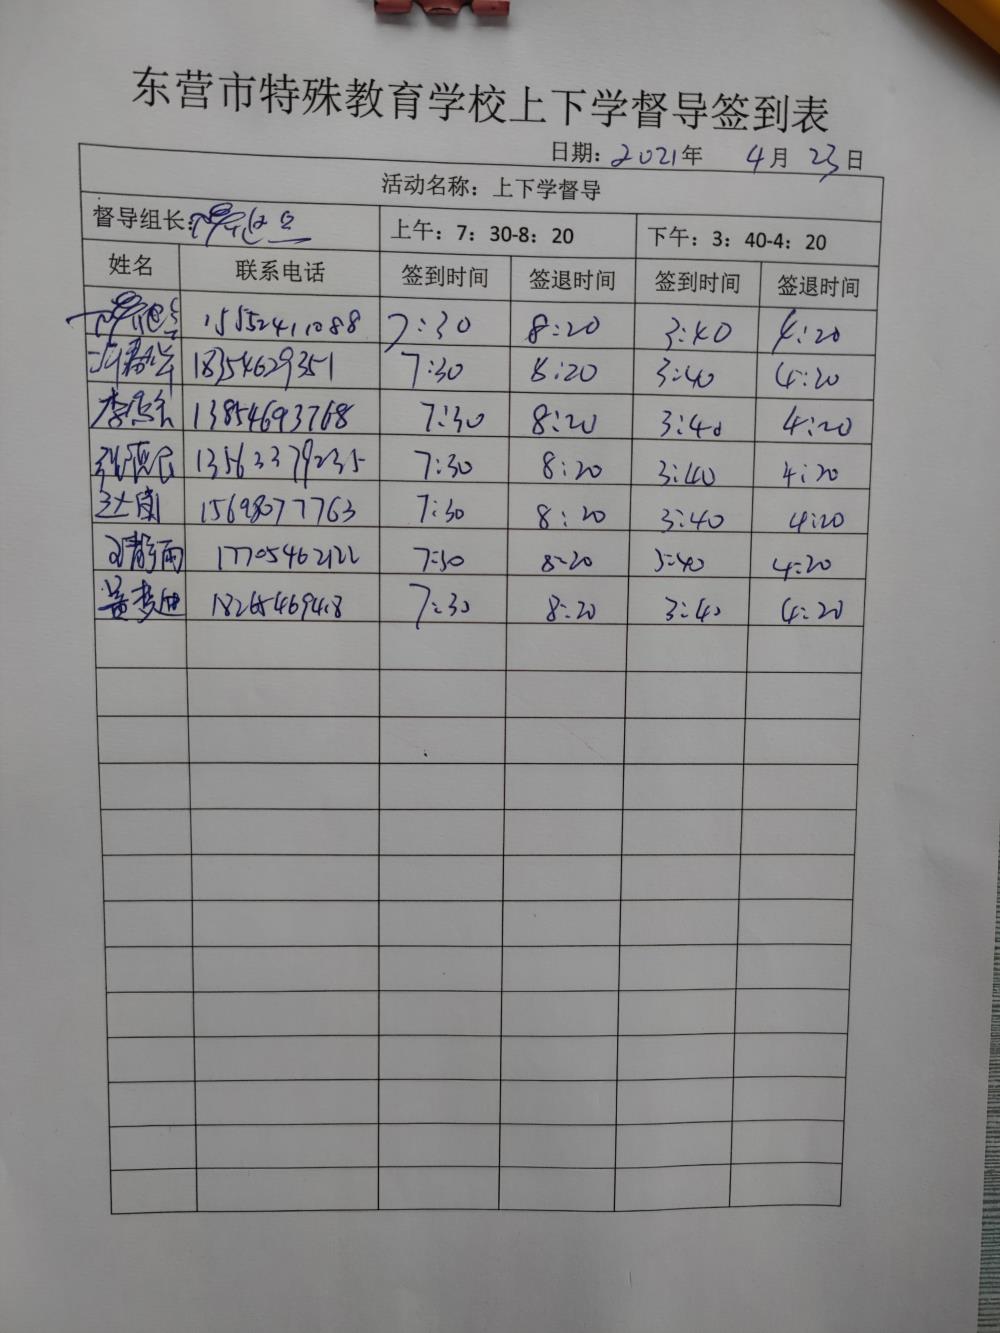 东营市特殊教育学校上下学督导签到表
日期：2021年 4月 23日
活动名称：上下学督导
督导组长： 上午：7：30-8：20 下午：3：40-4：20
姓名 联系电话 签到时间 签退时间 签到时间 签退时间
15552411088 7:30 8:20 3:40 4:20
18354629351 7:30 8:20 3:40 4:20
李 13854693768 7:30 8:20 3:40 4:20
13563379235 7:30 8:20 3:40 4:20
15698077763 7:30 8:20 3:40 4:20
静雨 17705462122 7:30 8:20 3:40 4:20
黄梦迪 7:30 8:20 3:40 4:20